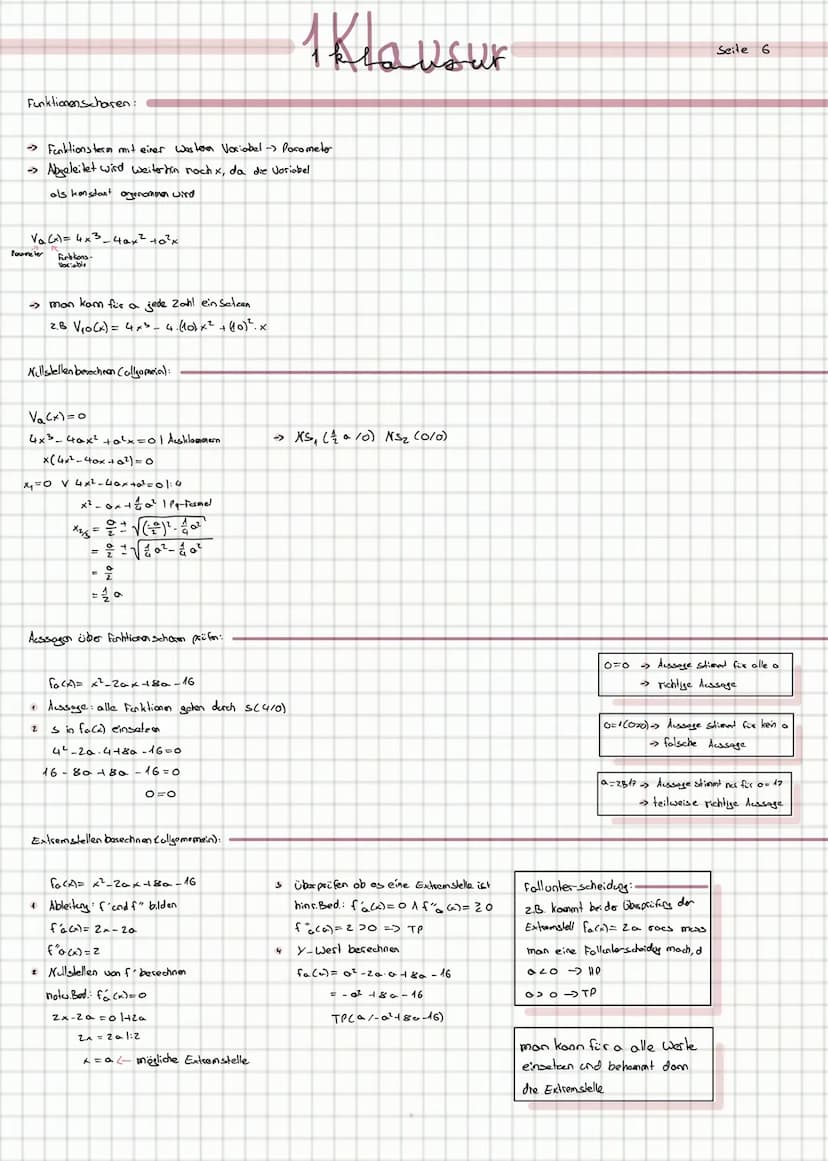 1Klausur
1 klausur
Seite 6
Funktionenscharen:
-> Funktionsterm mit einer weiteren Variabel -> Parameter
-> Abgeleitet wird weiterhin nach x, da die Variabel
als konstant angenommen wird
Va(x) = 4x³ - 4ax² + a²x
Parameter
Funktions-
variable
-> man kann für a jede Zahl einsetzen
z.B V10(x) = 4x³ - 4·(10)x² + (10)²·x
Nullstellen berechnen (allgemein):
Va(x) = 0
4x³ - 4ax² + a²x = 0 | Ausklammern
x(4x² - 4ax + a²) = 0
x₁ = 0 ∨ 4x² - 4ax + a² = 0 | :4
x² - ax + 1/4 a² | Pq-Formel
x2/3 = a/2 ± √((-a/2)² - 1/4 a²)
= a/2 ± √(1/4 a² - 1/4 a²)
= a/2
= 1/2 a
-> NS₁ (1/2 a /0) NS₂ (0/0)
Aussagen über Funktionenscharen prüfen:
fa(x) = x² - 2ax + 8a - 16
1 Aussage: alle Funktionen gehen durch S(4/0)
2 S in fa(x) einsetzen
4² - 2a·4 + 8a - 16 = 0
16 - 8a + 8a - 16 = 0
0 = 0
0=0 -> Aussage stimmt für alle a
-> richtige Aussage
-> Aussage stimmt für kein a
-> falsche Aussage
-> Aussage stimmt nur für a = 17
-> teilweise richtige Aussage
Extremstellen berechnen (allgemein):
fa(x) = x² - 2ax + 8a - 16
1 Ableitung: f' und f" bilden
f'a(x) = 2x - 2a
f"a(x) = 2
2 Nullstellen von f' berechnen
notw.Bed.: f'a(x) = 0
2x - 2a = 0 | +2a
2x = 2a | :2
x = a <- mögliche Extremstelle
3 überprüfen ob es eine Extremstelle ist
hinr.Bed.: f'a(x) = 0 ∧ f"a(x) = ≷ 0
f"a(a) = 2 > 0 => TP
4 Y-Wert berechnen
fa(a) = a² - 2a·a + 8a - 16
= -a² + 8a - 16
TP(a/-a²+8a-16)
Fallunterscheidung:
z.B. kommt bei der Überprüfung der
Extremstell fa(x) = 2a raus muss
man eine Fallunterscheidung mach,d
a < 0 -> HP
a > 0 -> TP
man kann für a alle Werte
einsetzen und bekommt dann
die Extremstelle